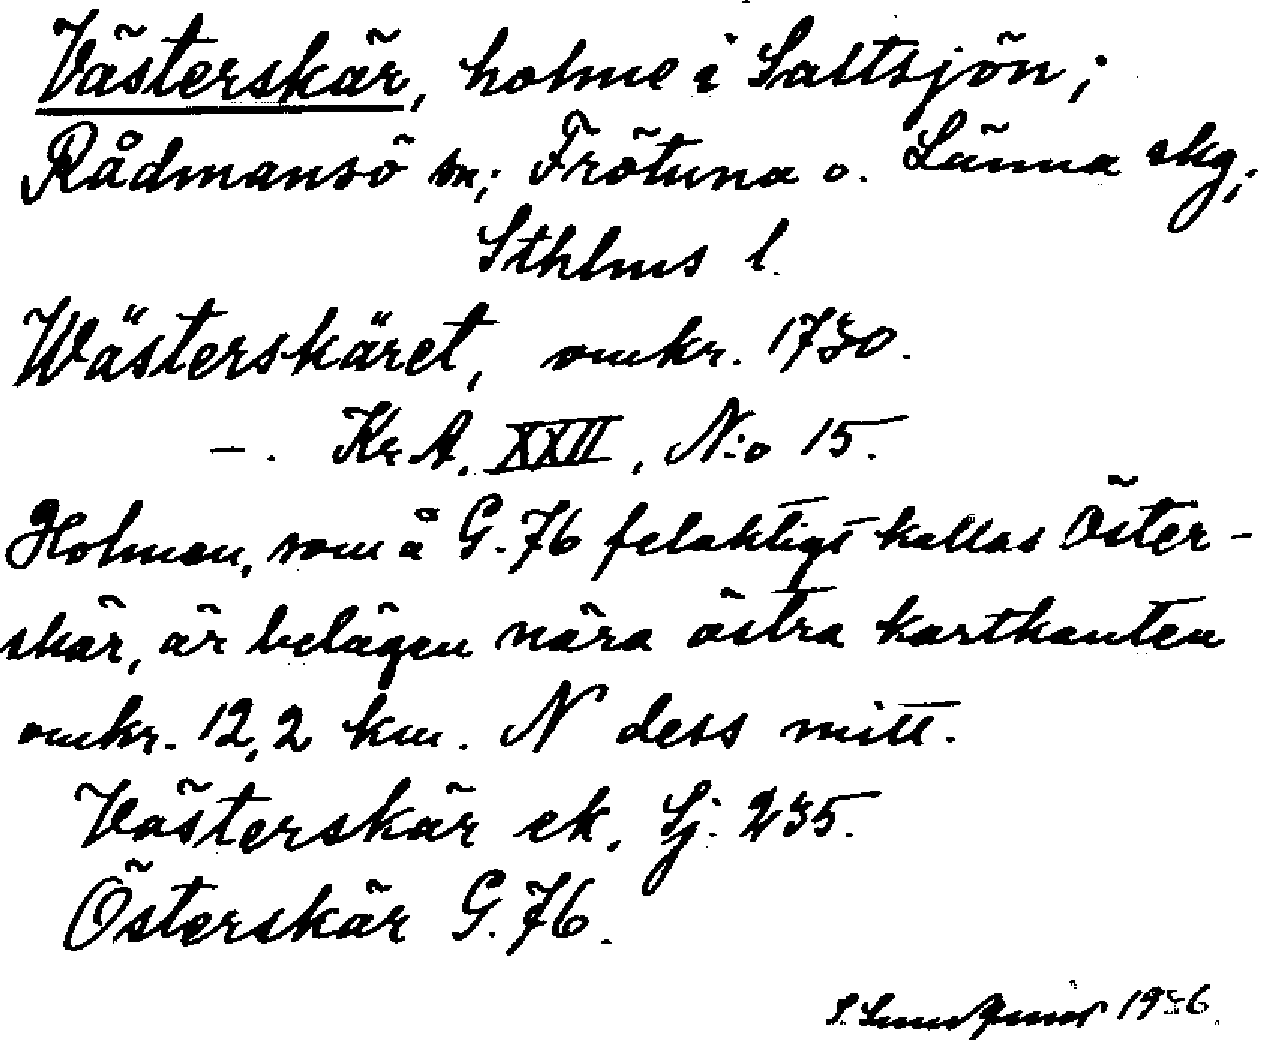 Västerskär, holme i Saltsjön;
Rådmansö sn; Frötuna o. Länna skg;
Sthlms l.
Wästerskäret, omkr. 1730.
—. Kr. A. XXII, N:o 15.
Holmen, som å G. 76 felaktigt kallas Öster-
skär, är belägen nära östra kartkanten
omkr. 12,2 km. N dess mitt.
Västerskär ek. Sj. 235.
Österskär G. 76.
1936.